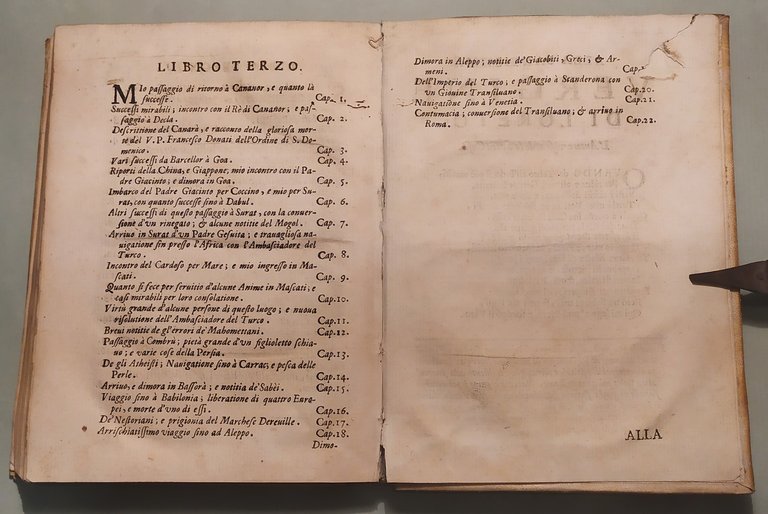 LIBRO TERZO.
MIo passaggio di ritorno à Cananor, e quanto là
successe. Cap. 1.
Successi mirabili; incontro con il Rè di Cananor; e pas-
saggio à Decla. Cap. 2.
Descrittione del Canarà, e racconto della gloriosa mor-
te del V. P. Francesco Donati dell'Ordine di S. Do-
menico. Cap. 3.
Vari successi da Barcellor à Goa. Cap. 4.
Riporti della China, e Giappone, mio incontro con il Pa-
dre Giacinto; e dimora in Goa. Cap. 5.
Imbarco del Padre Giacinto per Coccino, e mio per Su-
rat, con quanto successe sino à Dabul. Cap. 6.
Altri successi di questo passaggio à Surat, con la conuer-
sione d'vn rinegato; & alcune notitie del Mogol. Cap. 7.
Arriuo in Surat d'vn Padre Gesuita; e trauagliosa na-
uigatione fin presso l'Africa con l'Ambasciadore del
Turco. Cap. 8.
Incontro del Cardoso per Mare; e mio ingresso in Ma-
scati. Cap. 9.
Quanto si fece per seruitio d'alcune Anime in Mascati; e
casi mirabili per loro consolatione. Cap.10.
Virtù grande d'alcune persone di questo luogo; e nuoua
risolutione dell'Ambasciadore del Turco. Cap.11.
Breui notitie de gl'errori de' Mahomettani. Cap.12.
Passaggio à Combrù; pietà grande d'vn figlioletto schia-
uo; e varie cose della Persia. Cap.13.
De gli Atheisti; Nauigatione sino à Carrac, e pesca delle
Perle. Cap.14.
Arriuo, e dimora in Bassorà; e notitia de' Sabèi. Cap.15.
Viaggio sino à Babilonia; liberatione di quattro Euro-
pei, e morte d'vno di essi. Cap.16.
De' Nestoriani; e prigionia del Marchese Dereuille. Cap.17.
Arrischiatissimo viaggio sino ad Aleppo. Cap.18.
Dimo-
Dimora in Aleppo; notitie de' Giacobiti, Greci, & Ar-
meni. Cap.
Dell'Imperio del Turco; e passaggio à Scanderona con
vn Giouine Transiluano. Cap.20.
Nauigatione sino à Venetia. Cap.21.
Contumacia; conuersione del Transiluano; & arriuo in
Roma. Cap.22.
ALLA